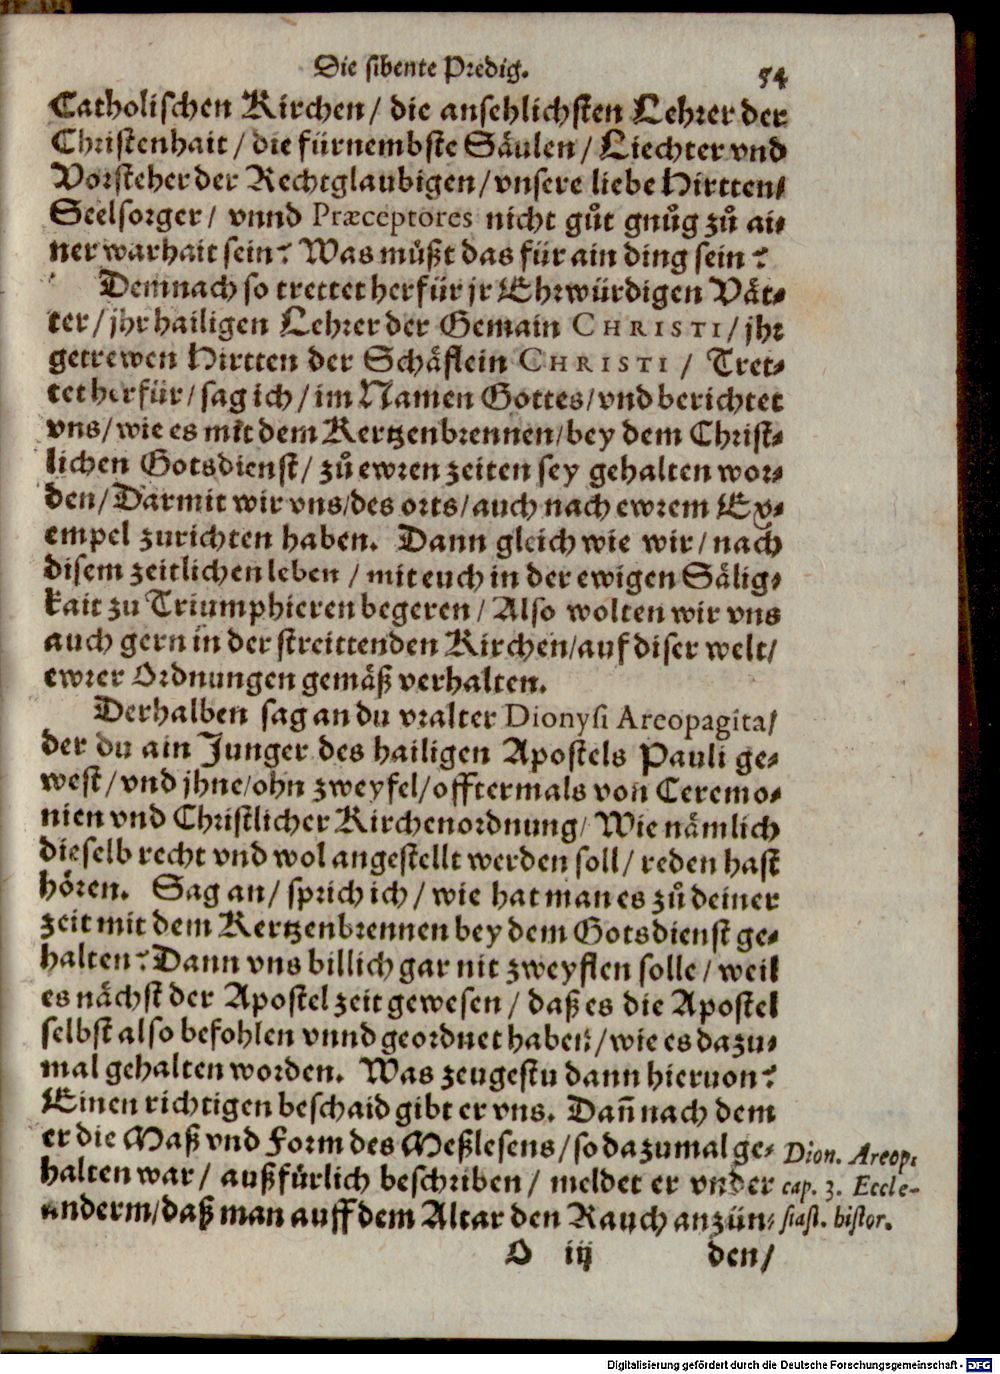 Die sibente Predig. 54
Catholischen Kirchen / die ansehlichsten Lehrer der
Christenhait / die fürnembste Säulen / Liechter vnd
Vorsteher der Rechtglaubigen / vnsere liebe Hirtten /
Seelsorger / vnnd Præceptores nicht gůt gnůg zů ai⸗
ner warhait sein? Was müßt das für ain ding sein?
Demnach so trettet herfür jr Ehrwürdigen Vät⸗
ter / jhr hailigen Lehrer der Gemain CHRISTI / jhr
getrewen Hirtten der Schäflein CHRISTI / Tret⸗
tet herfür / sag ich / im Namen Gottes / vnd berichtet
vns / wie es mit dem Kertzenbrennen / bey dem Christ⸗
lichen Gotsdienst / zů ewren zeiten sey gehalten wor⸗
den / Darmit wir vns / des orts / auch nach ewrem Ex⸗
empel zurichten haben. Dann gleich wie wir / nach
disem zeitlichen leben / mit euch in der ewigen Sälig⸗
kait zu Triumphieren begeren / Also wolten wir vns
auch gern in der streittenden Kirchen / auf diser welt /
ewrer Ordnungen gemäß verhalten.
Derhalben sag an du vralter Dionysi Areopagita /
der du ain Junger des hailigen Apostels Pauli ge⸗
west / vnd jhne / ohn zweyfel / offtermals von Ceremo⸗
nien vnd Christlicher Kirchenordnung / Wie nämlich
dieselb recht vnd wol angestellt werden soll / reden hast
hören. Sag an / sprich ich / wie hat man es zů deiner
zeit mit dem Kertzenbrennen bey dem Gotsdienst ge⸗
halten? Dann vns billich gar nit zweyflen solle / weil
es nächst der Apostel zeit gewesen / daß es die Apostel
selbst also befohlen vnnd geordnet haben / wie es dazu⸗
mal gehalten worden. Was zeugestu dann hieruon?
Einen richtigen beschaid gibt er vns. Dañ nach dem
er die Maß vnd Form des Meßlesens / so dazumal ge⸗
halten war / außfürlich beschriben / meldet er vnder
anderm / daß man auff dem Altar den Rauch anzün⸗
Dion. Areop.
cap. 3. Eccle-
siast. histor.
O iij den /
Digitalisierung gefördert durch die Deutsche Forschungsgemeinschaft - DFG